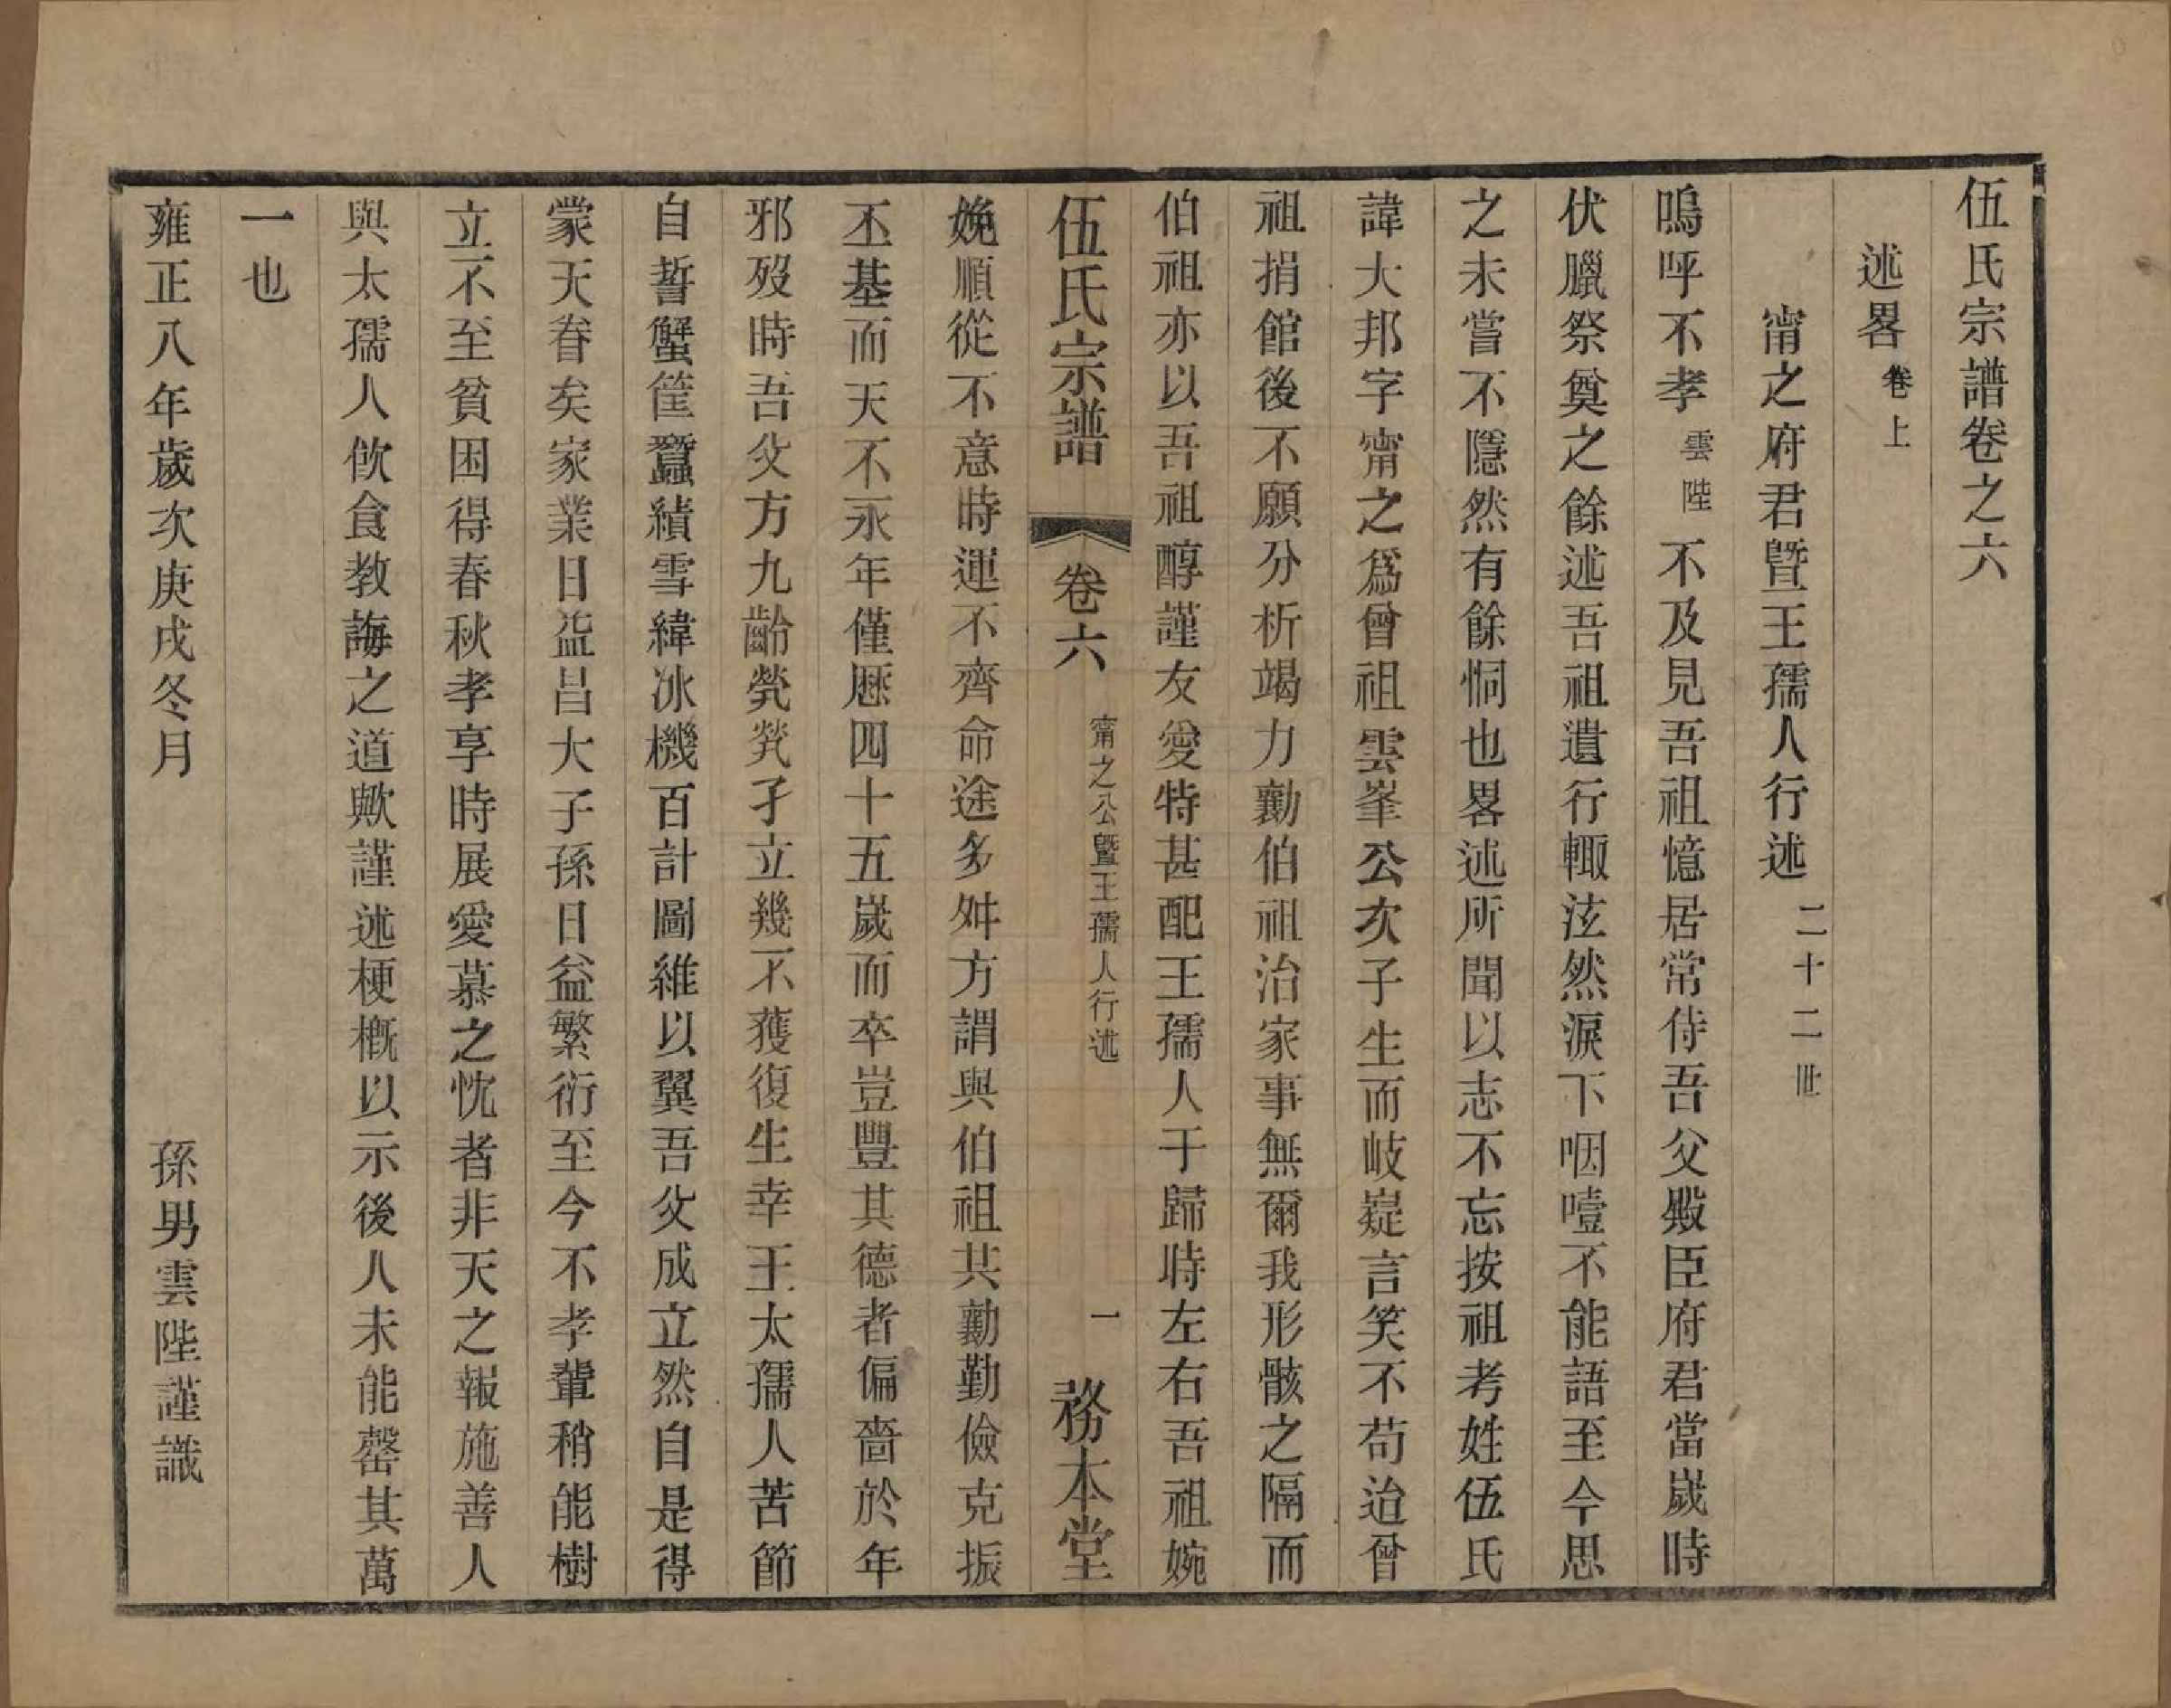 伍氏宗譜卷之六
述畧卷上
甯之府君暨王孺人行述二十二世
嗚呼不孝雲陛不及見吾祖憶居常侍吾父殿臣府君當歲時
伏臘祭奠之餘述吾祖遺行輙泫然淚下咽噎不能語至今思
之未嘗不隱然有餘恫也畧述所聞以志不忘按祖考姓伍氏
諱大邦字甯之爲曾祖雲峯公次子生而岐嶷言笑不苟迨曾
祖捐館後不願分析竭力勷伯祖治家事無爾我形骸之隔而
伯祖亦以吾祖醇謹友愛特甚配王孺人于歸時左右吾祖婉
伍氏宗譜 卷六 甯之公暨王孺人行述 一 務本堂
娩順從不意時運不齊命途多舛方謂與伯祖共勷勤儉克振
丕基而天不永年僅歷四十五歲而卒豈豐其德者偏嗇於年
邪歿時吾父方九齡煢煢孑立幾不獲復生幸王太孺人苦節
自誓蟹筐蠶績雪緯冰機百計圖維以翼吾父成立然自是得
蒙天眷矣家業日益昌大子孫日益繁衍至今不孝輩稍能樹
立不至貧困得春秋孝享時展愛慕之忱者非天之報施善人
與太孺人飲食教誨之道歟謹述梗概以示後人未能罄其萬
一也
雍正八年歲次庚戌冬月 孫男雲陛謹識